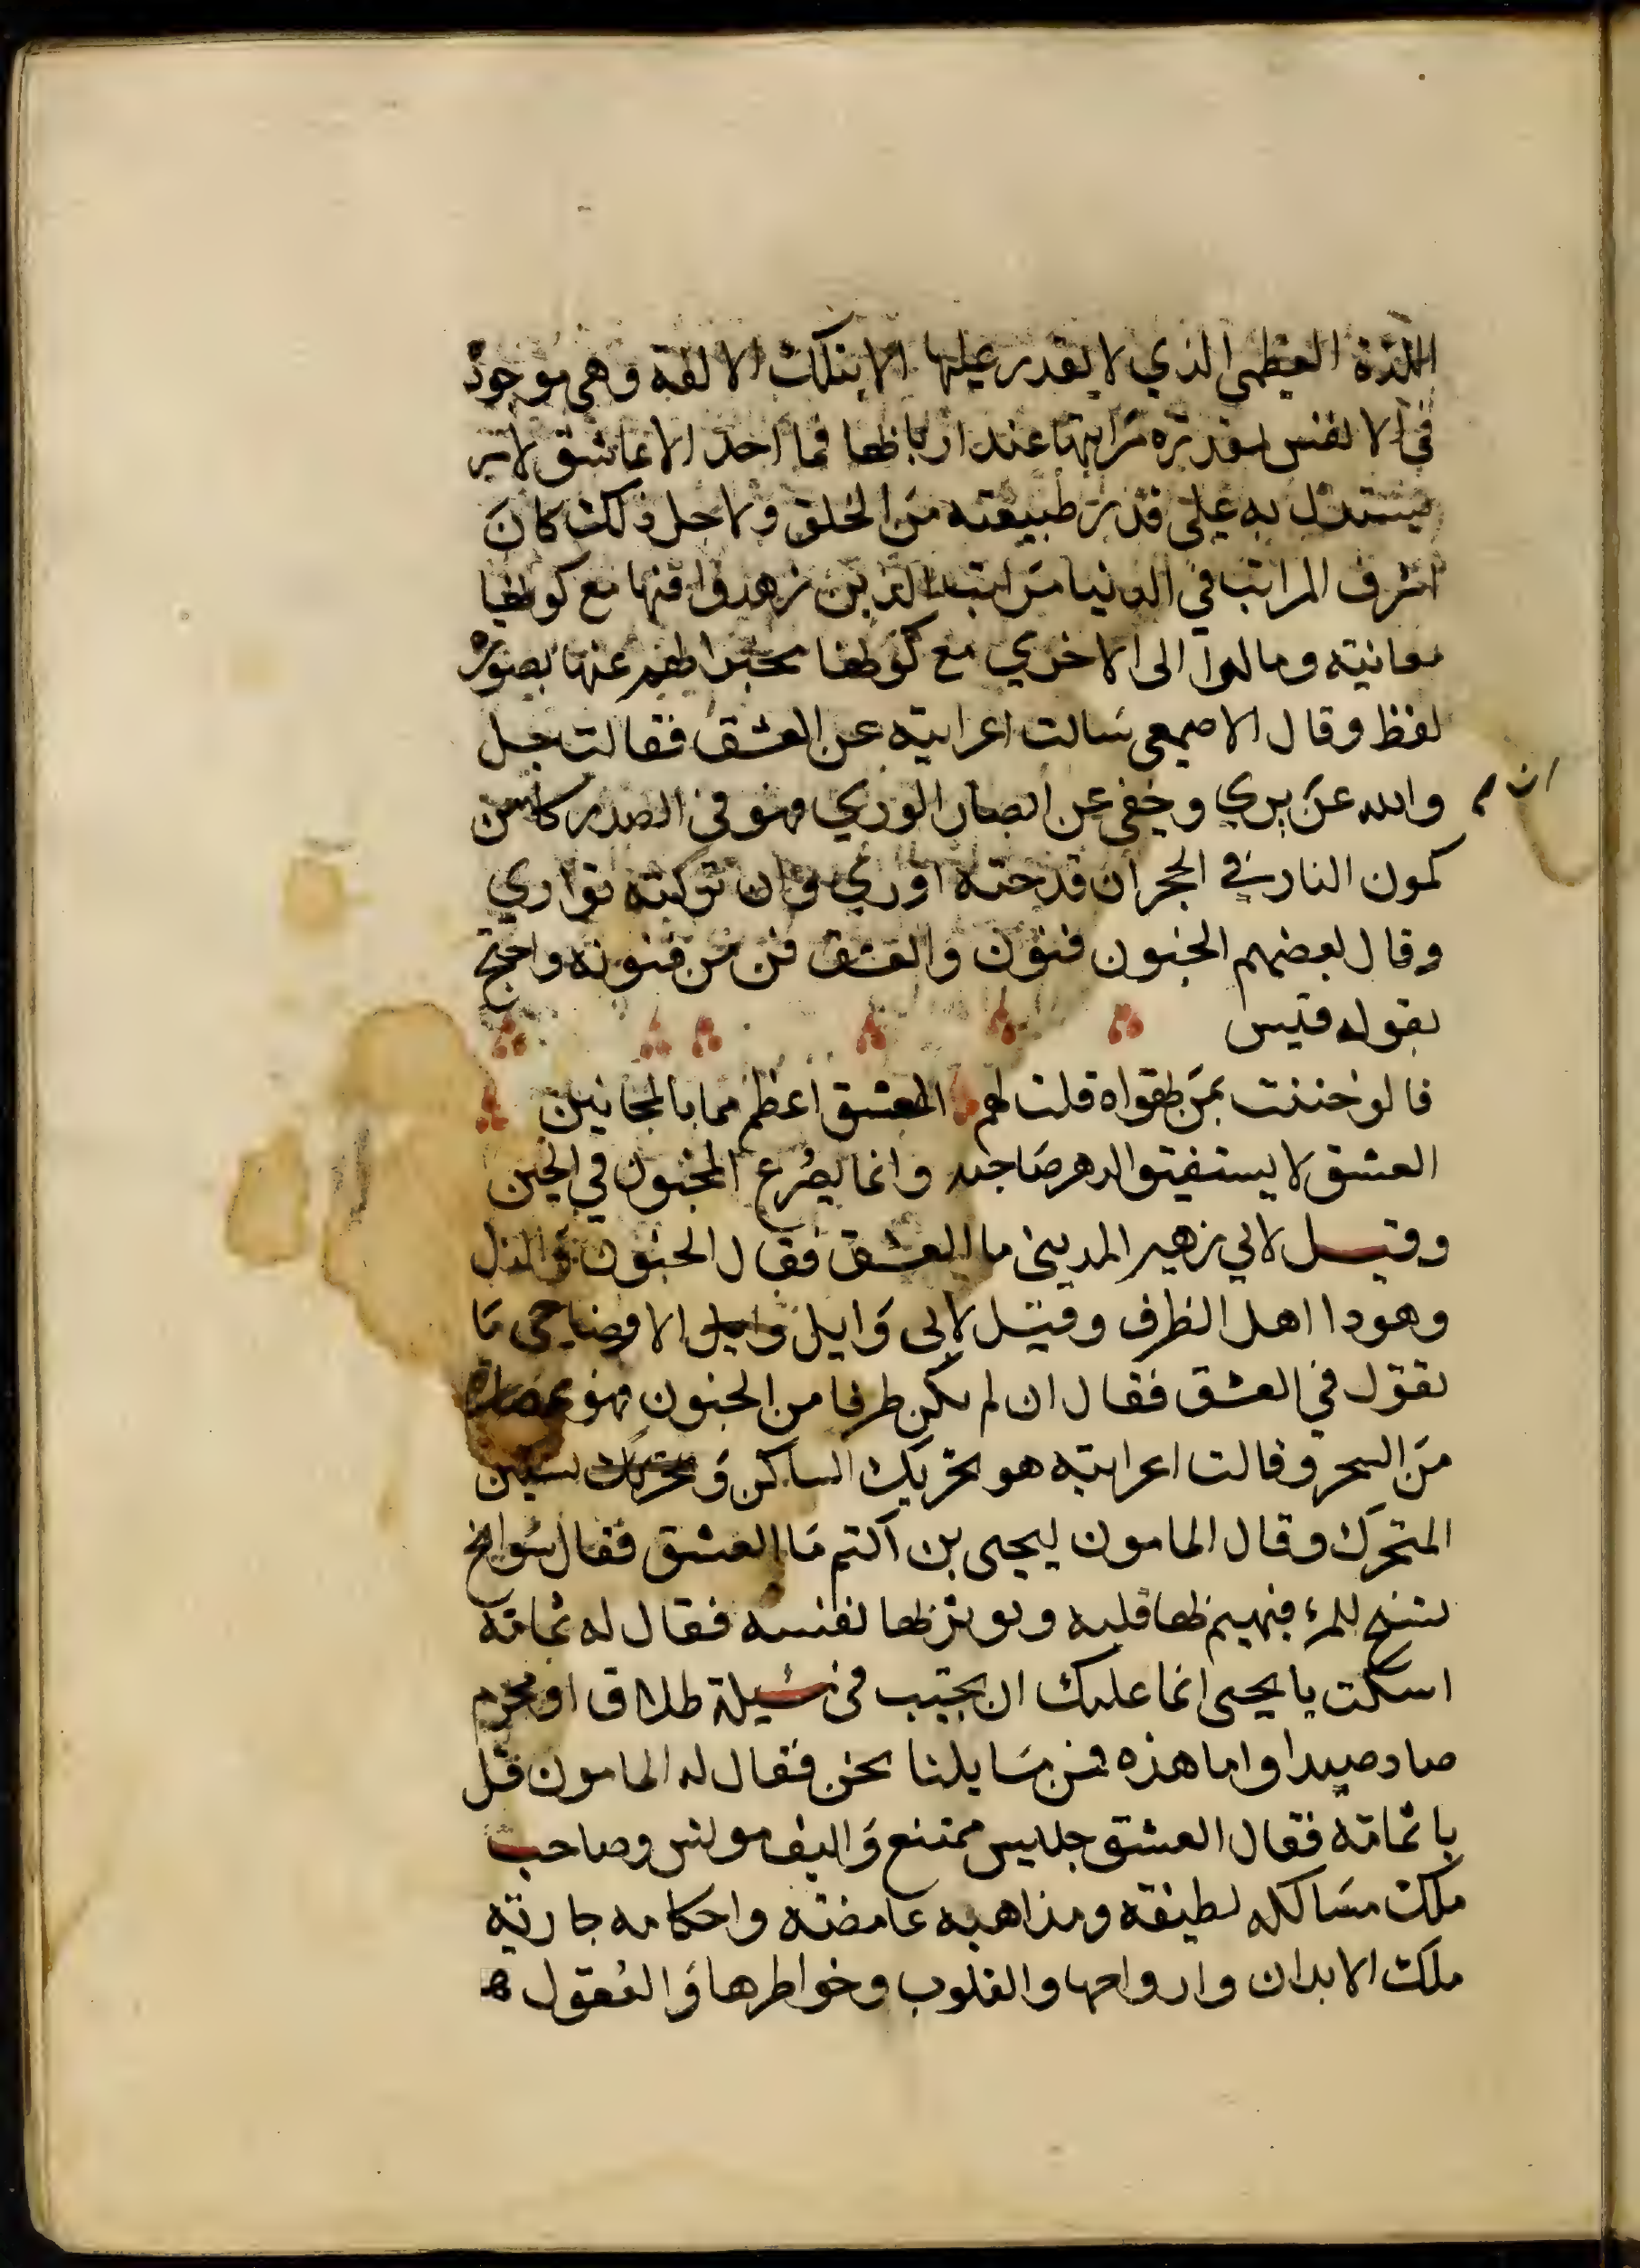 اللذة العظمى الذي لا يقدر عليها الا بتلك الالفة وهي موجود
في الانفس بقدرة مراتبها عند اربابها فما احد الا عاشق لامر
يستدل به على قدر طبيعته من الخلق ولاجل ذلك كان
اشرف المراتب في الدنيا مراتب الذين زهدوا فيها مع كونها
معاينة ومالوا الى الاخري مع كونها مخبرا لهم عنها بصورة
لفظ وقال الاصمعي سالت اعرابية عن العشق فقالت جل
والله عن يري وخفي عن ابصار الوري فهو في الصدر كامن
ان
كمون النار في الحجر ان قدحته اوري وان تركته تواري
وقال بعضهم الجنون فنون والعشق فن من فنونه واحتج
بقوله قيس
قالو جننت بمن تهواه قلت لهم العشق اعظم مما بالمجانين
العشق لا يستفيق الدهر صاحبه وانما يصرع المجنون في الحين
وقيل لابي زهير المديني ما العشق فقال الجنون والذل
وهو داا اهل الظرف وقيل لابي وايل الاوضاحي ما
تقول في العشق فقال ان لم يكن طرفا من الجنون فهو عصارة
من السحر وقالت اعرابية هو تحريك الساكن وتسكين
المتحرك وقال المامون ليحيى بن اكثم ما العشق فقال سوانح
تسنح للمرء فيهيم بها قلبه وتوثرها نفسه فقال له ثمامة
اسكت يا يحيى انما عليك ان تجيب في مسيلة طلاق او محرم
صاد صيدا واما هذه فمن مسايلنا نحن فقال له المامون قل
يا ثمامة فقال العشق جليس ممتنع واليف مونس وصاحب
ملك مسالكه لطيفة ومذاهبه غامضة واحكامه جارية
ملك الابدان وارواحها والقلوب وخواطرها والعقول